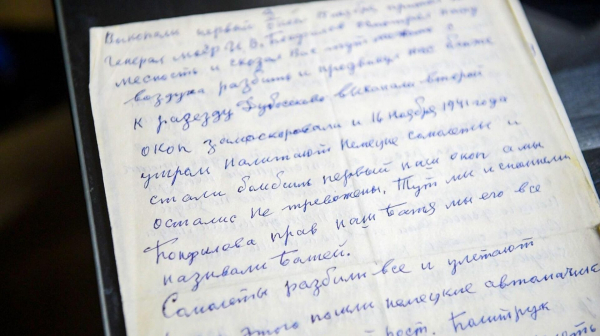 Выкопали первый
Генерал маёр И. В. Панфилов осмотрел нашу
месность и сказал Вас тут можно с
воздуха разбить и продвинул нас ближе
к разезду Дубосково выкопали второй
окоп замаскоровали и 16 Ноября 1941 года
утром налитают Немецкие самолёты и
стали бомбить первый наш окоп а мы
осталис не тревожены. Тут мы и спомнили
Панфилова прав наш Батя мы его все
называли Батей.
Самолёты разбили все и улетают
этого пошли немецкие автоматчик
рост. Политрук